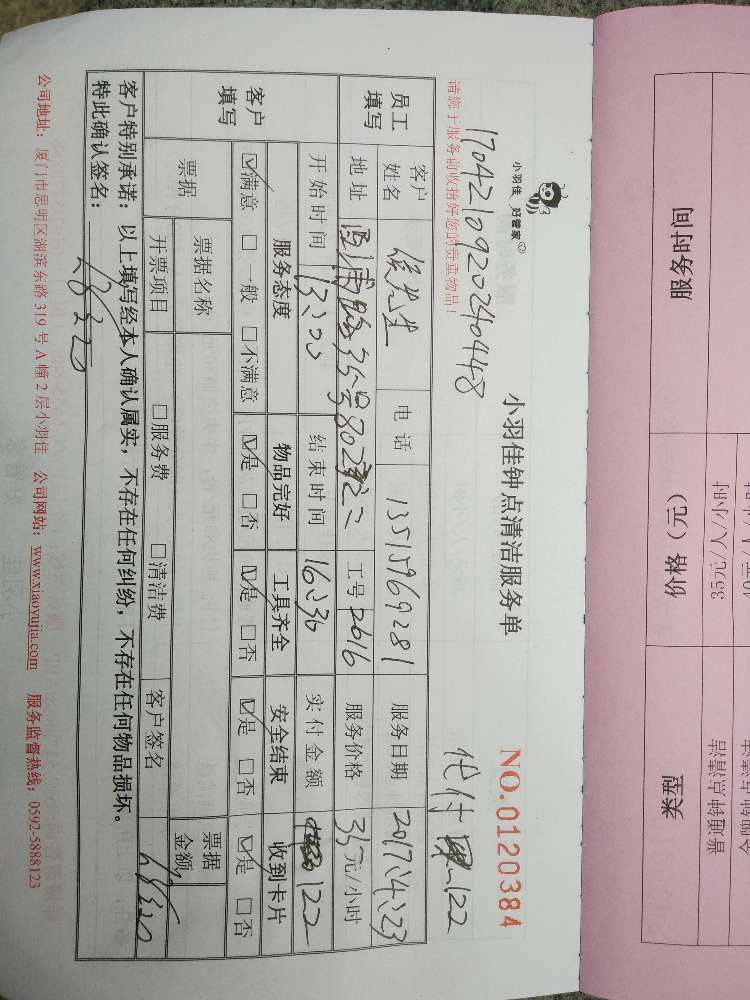 小羽佳 好管家
小羽佳钟点清洁服务单
NO.0120384
请您于服务前收拾好您的贵重物品!
员工填写
客户姓名
侯先生
电话
13515969281
服务日期
2017.4.23
地址
工号
2616
服务价格
35元/小时
开始时间
13:00
结束时间
16:30
实付金额
122
客户填写
服务态度
物品完好
工具齐全
安全结束
收到卡片
☑满意 □一般 □不满意
☑是 □否
☑是 □否
☑是 □否
☑是 □否
票据
票据名称
票据金额
开票项目
□服务费
□清洁费
客户签名
客户特别承诺:以上填写经本人确认属实,不存在任何纠纷,不存在任何物品损坏。
特此确认签名:
公司地址:厦门市思明区湖滨东路319号A幢2层小羽佳 公司网站:www.xiaoyujia.com 服务监督热线:0592-5888123
服务时间
价格(元)
类型
35元/人/小时
普通钟点清洁